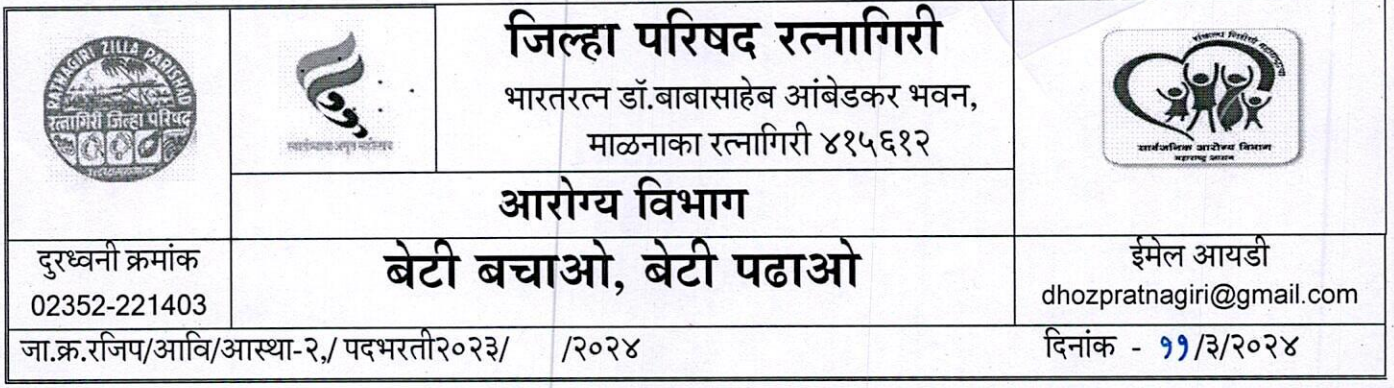 RATNAGIRI ZILLA PARISHAD
रत्नागिरी जिल्हा परिषद
स्वातंत्र्याचा अमृत महोत्सव
जिल्हा परिषद रत्नागिरी
भारतरत्न डॉ.बाबासाहेब आंबेडकर भवन,
माळनाका रत्नागिरी ४१५६१२
सार्वजनिक आरोग्य विभाग
महाराष्ट्र शासन
आरोग्य विभाग
दुरध्वनी क्रमांक
02352-221403
बेटी बचाओ, बेटी पढाओ
ईमेल आयडी
dhozpratnagiri@gmail.com
जा.क्र.रजिप/आवि/आस्था-२,/ पदभरती२०२३/ /२०२४ दिनांक - ११/३/२०२४